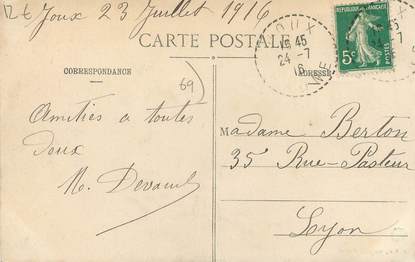 Joux 23 Juillet 1916
CARTE POSTALE
JOUX
15 45
24-7
16
REPUBLIQUE FRANÇAISE
5c
POSTES
CORRESPONDANCE
ADRESSE
69
Amitiés a toutes
deux
Madame Berton
35 Rue-Pasteur
Lyon